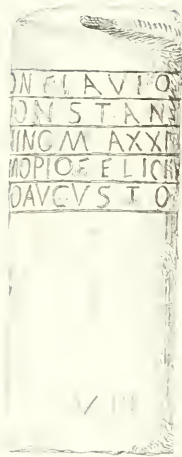 ON FLAVIO
ONSTAN
IINOM AXXI
MOPIOFELICI
OAVGVSTO
VIII